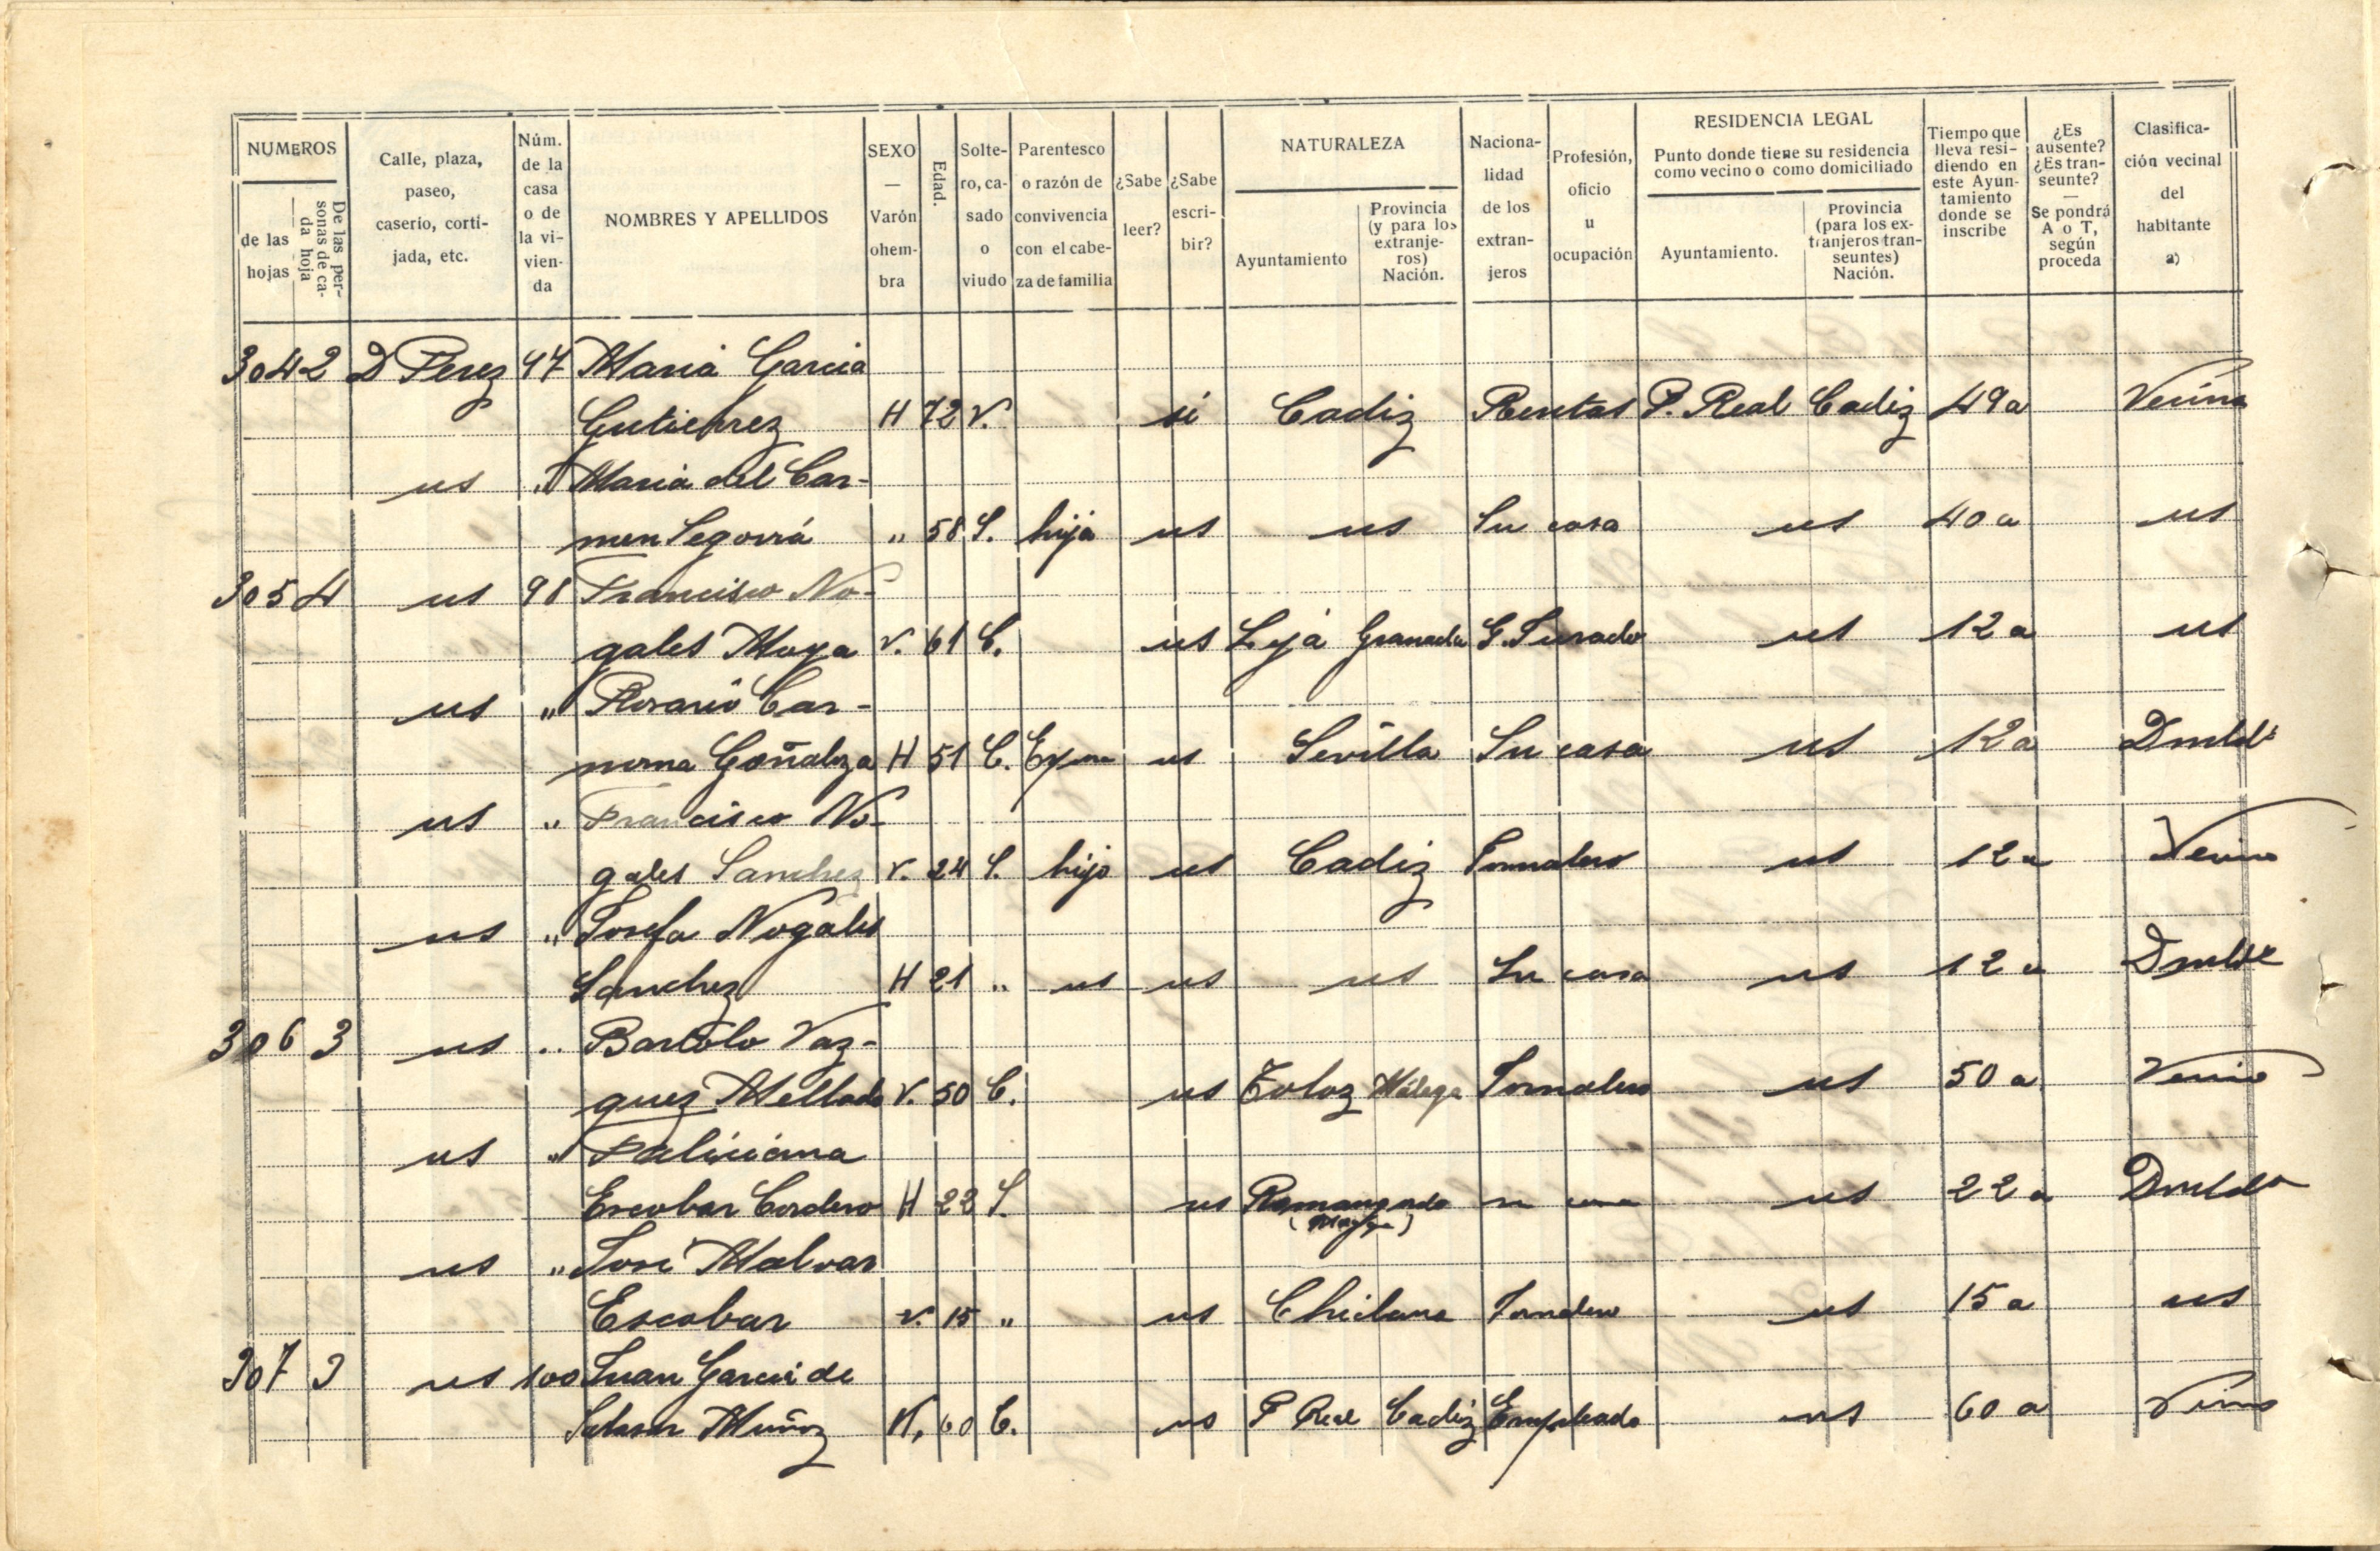 NUMEROS
de las hojas
De las personas de cada hoja
Calle, plaza, paseo, caserío, cortijada, etc.
Núm. de la casa o de la vivienda
NOMBRES Y APELLIDOS
SEXO — Varón ohembra
Edad.
Soltero, casado o viudo
Parentesco o razón de convivencia con el cabeza de familia
¿Sabe leer?
¿Sabe escribir?
NATURALEZA
Ayuntamiento
Provincia (y para los extranjeros) Nación.
Nacionalidad de los extranjeros
Profesión, oficio u ocupación
RESIDENCIA LEGAL
Punto donde tiene su residencia como vecino o como domiciliado
Ayuntamiento.
Provincia (para los extranjeros transeuntes) Nación.
Tiempo que lleva residiendo en este Ayuntamiento donde se inscribe
¿Es ausente? ¿Es transeunte? — Se pondrá A o T, según proceda
Clasificación vecinal del habitante a)
304 2 D Perez 97 Maria Garcia
Gutierrez H 72 V. si Cadiz Rentas P. Real Cadiz 49 a Vecina
us " Maria del Car-
men Segovia " 58 S. hija us us Su casa us 40 a us
305 4 us 98 Francisco No-
gales Moya V. 61 C. us Loja Granada G. Jurado us 12 a us
us " Rosario Car-
mona H 51 C. us Sevilla Su casa us 12 a
us " Francisco No-
gales Sanchez V. 24 S. hijo us Cadiz Jornalero us 12 a Vecino
us " Josefa Nogales
Sanchez H 21 " us us us Su casa us 12 a
306 3 us " Bartolo Vaz-
quez Mellado V. 50 C. us Toloz Málaga Jornalero us 50 a Vecino
us " Feliciana
Escobar Cordero H 22 S. us su casa us 22 a
us " José Malvar
Escobar V. 15 " us Chiclana Jornalero us 15 a us
307 3 us 100 Juan Garcia de
Muñoz V. 60 C. us P Real Cadiz Empleado us 60 a Vecino